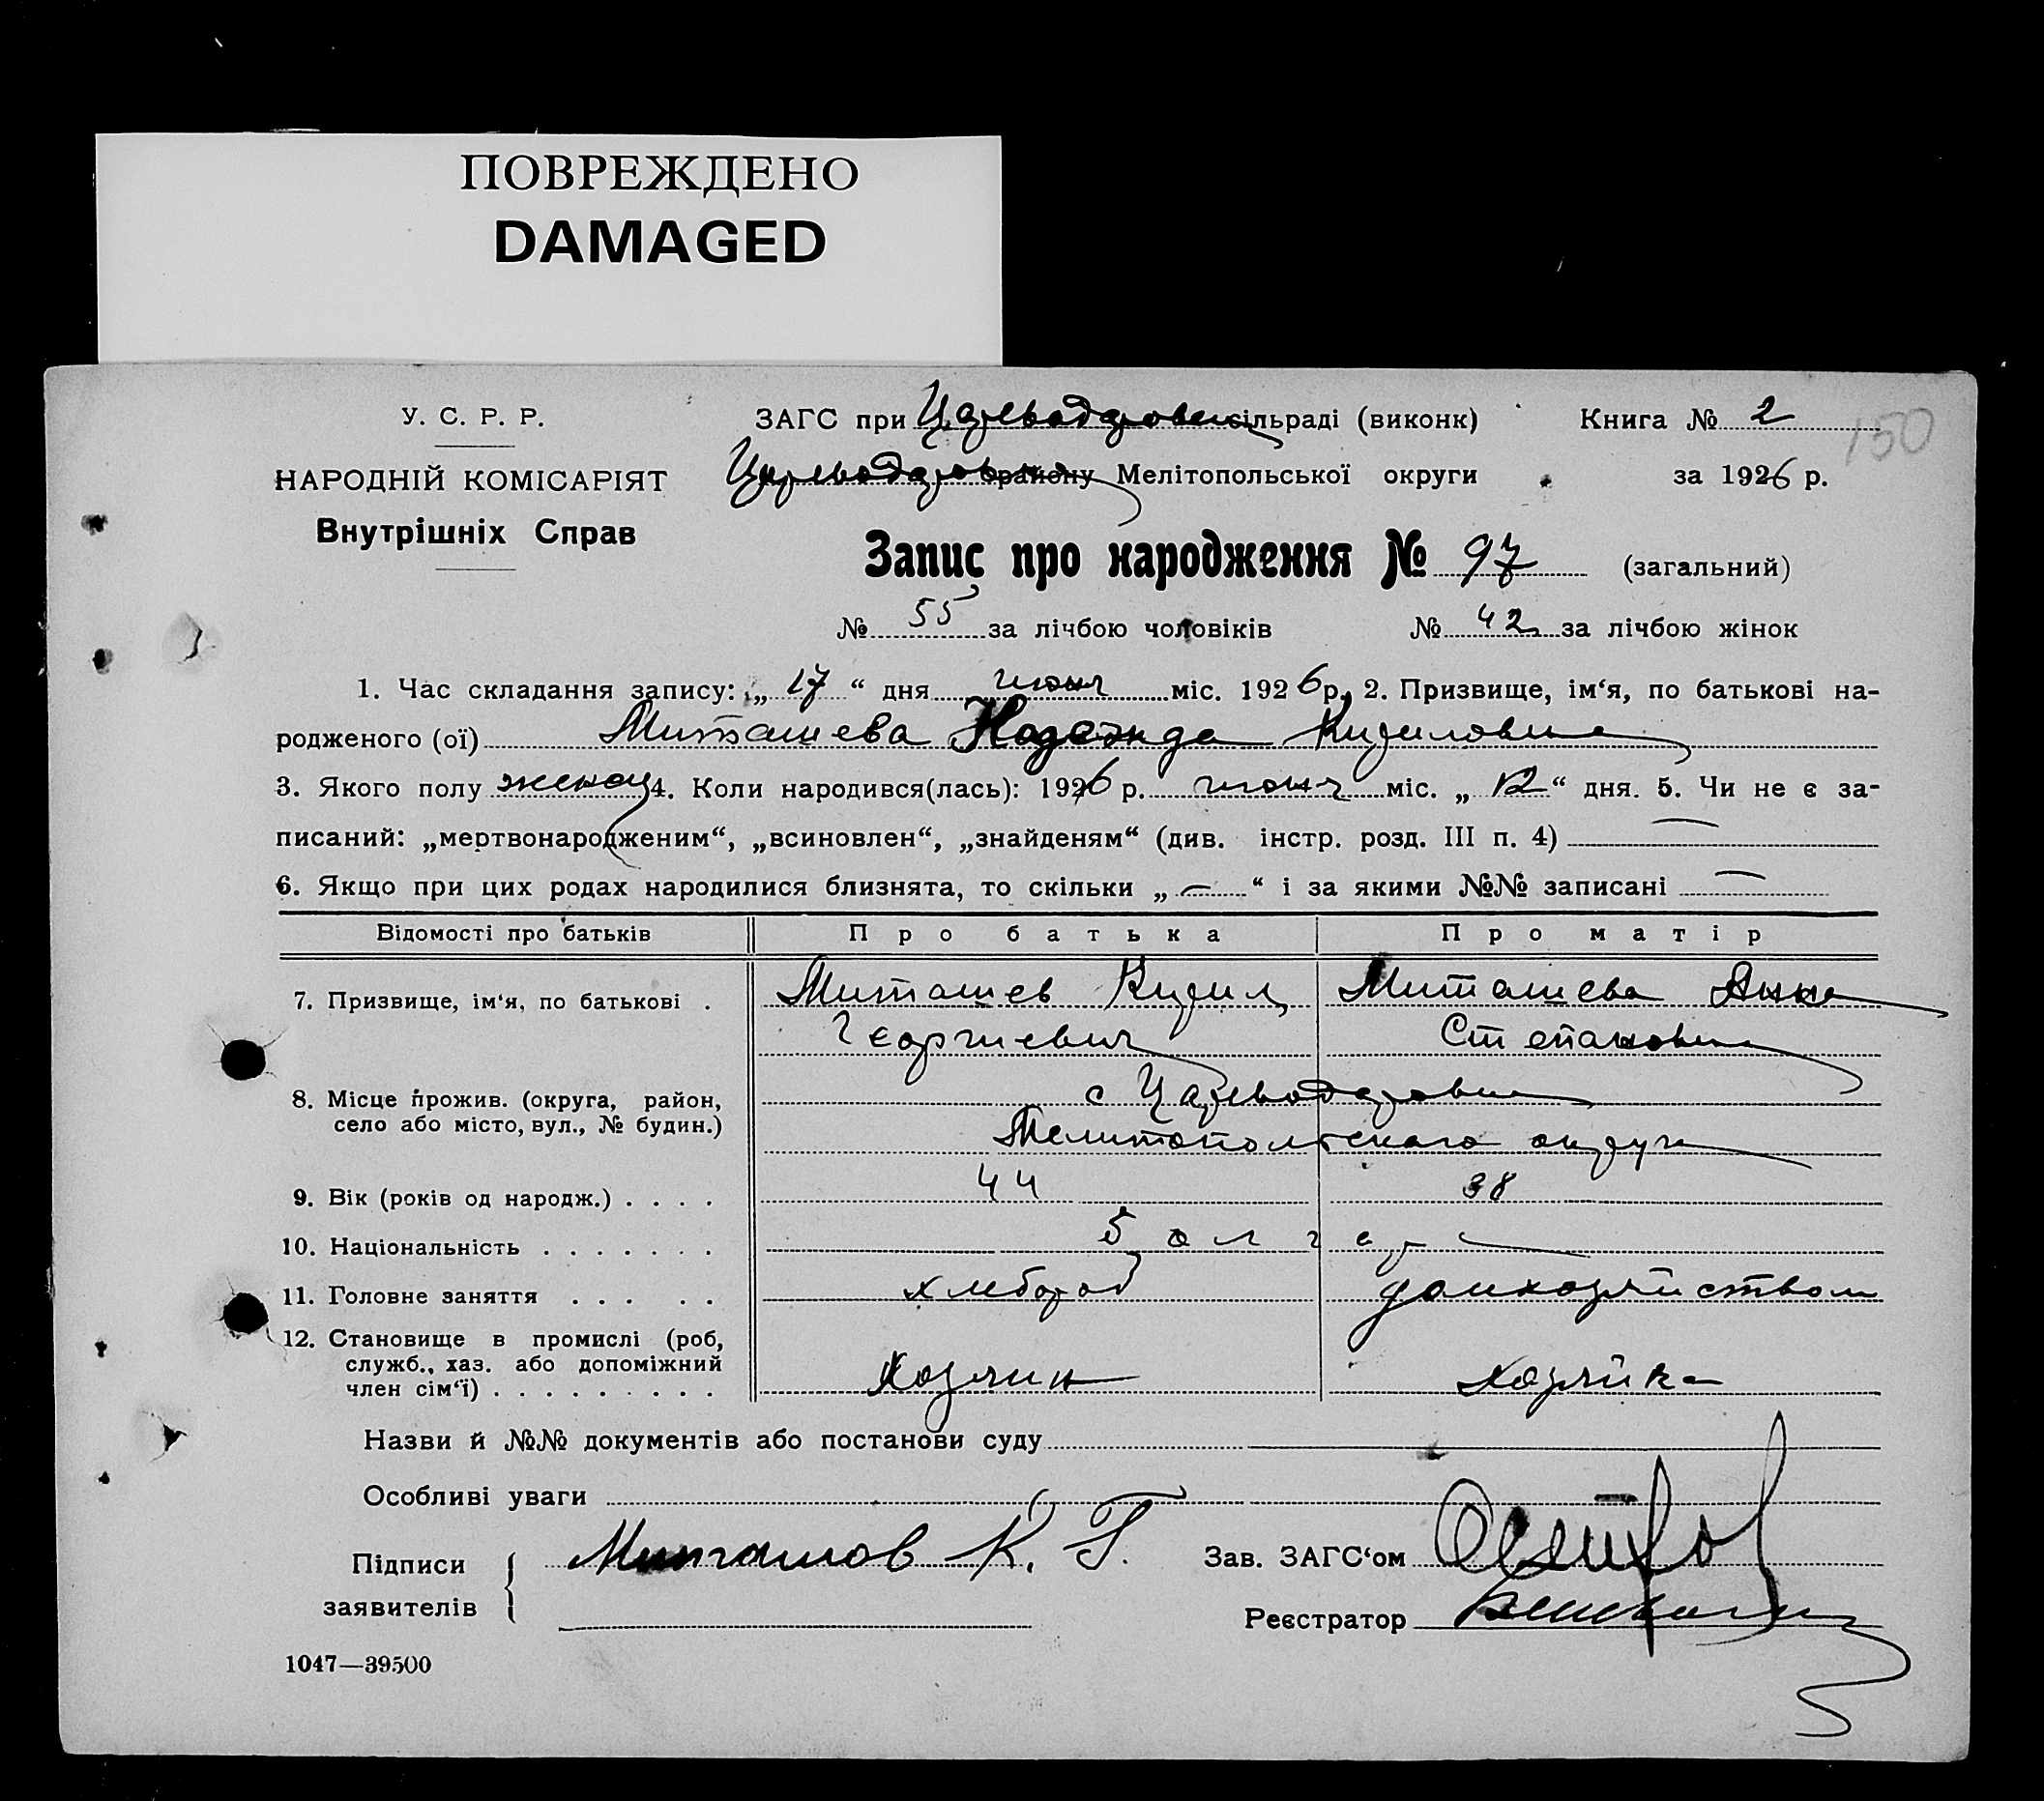 ПОВРЕЖДЕНО
DAMAGED
У. С. Р. Р.
НАРОДНІЙ КОМІСАРІЯТ
Внутрішніх Справ
ЗАГС при Царьводаровск сільраді (виконк)
Книга № 2
150
Царьводаровка району Мелітопольської округи
за 1926 р.
Запис про народження № 97 (загальний)
№ 55 за лічбою чоловіків № 42 за лічбою жінок
1. Час складання запису: „ 17 “ дня июня міс. 1926 р. 2. Призвище, ім‘я, по батькові на-
родженого (ої) Миташева Надежда Кириловна
3. Якого полу женск 4. Коли народився(лась): 1926 р. июня міс. „ 12 “ дня. 5. Чи не є за-
писаний: „мертвонародженим“, „всиновлен“, „знайденям“ (див. інстр. розд. III п. 4) —
6. Якщо при цих родах народилися близнята, то скільки „ — “ і за якими №№ записані —
Відомості про батьків Про батька Про матір
7. Призвище, ім‘я, по батькові . Миташев Кирил Миташева Анна
Георгиевич Степановна
8. Місце прожив. (округа, район, с Царьводаровка
село або місто, вул., № будин.) Мелитопольскаго округа
9. Вік (років од народж.) . . . . 44 38
10. Національність . . . . . . . болгары
11. Головне заняття . . . . . хлебороб домхозяйством
12. Становище в промислі (роб,
служб., хаз. або допоміжний
член сім‘ї) . . . . . . . . . Хозяин хозяйка
Назви й №№ документів або постанови суду
Особливі уваги
Підписи
заявителів
Миташов К. Г.
Зав. ЗАГС‘ом
Реєстратор
1047—39500